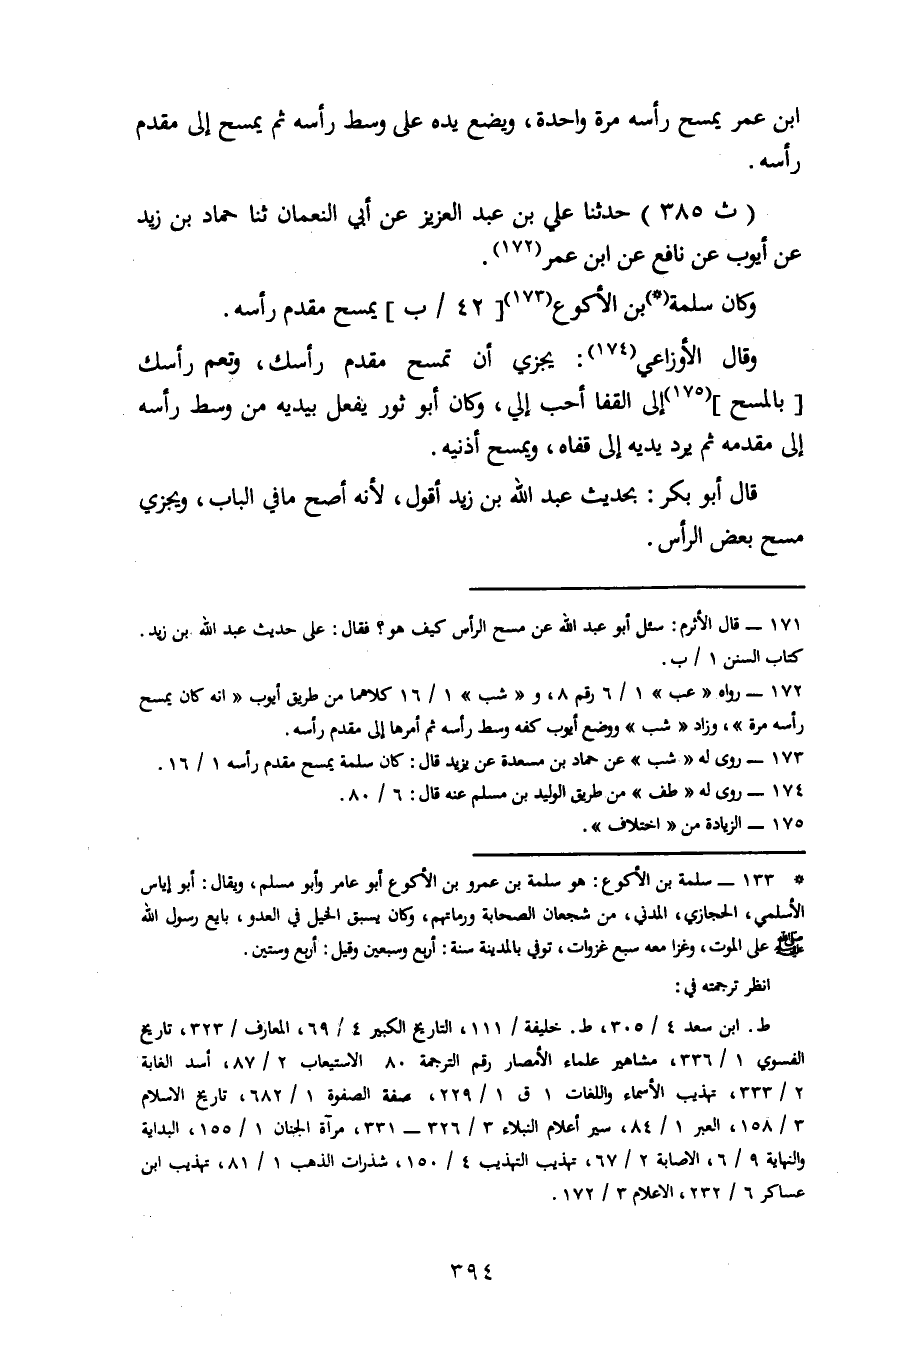 ابن عمر يمسح رأسه مرة واحدة، ويضع يده على وسط رأسه ثم يمسح إلى مقدم
رأسه.
( ث ٣٨٥ ) حدثنا علي بن عبد العزيز عن أبي النعمان ثنا حماد بن زيد
عن أيوب عن نافع عن ابن عمر(١٧٢).
وكان سلمة(*)بن الأكوع(١٧٣)[ ٤٢ / ب ] يمسح مقدم رأسه.
وقال الأوزاعي(١٧٤): يجزي أن تمسح مقدم رأسك، وتعم رأسك
[ بالمسح ](١٧٥)إلى القفا أحب إلي، وكان أبو ثور يفعل بيديه من وسط رأسه
إلى مقدمه ثم يرد يديه إلى قفاه، ويمسح أذنيه.
قال أبو بكر: بحديث عبد الله بن زيد أقول، لأنه أصح مافي الباب، ويجزي
مسح بعض الرأس.
١٧١ ــ قال الأثرم: سئل أبو عبد الله عن مسح الرأس كيف هو؟ فقال: على حديث عبد الله بن زيد.
كتاب السنن ١ / ب.
١٧٢ ــ رواه « عب » ١ / ٦ رقم ٨، و « شب » ١ / ١٦ كلاهما من طريق أيوب « انه كان يمسح
رأسه مرة »، وزاد « شب » ووضع أيوب كفه وسط رأسه ثم أمرها إلى مقدم رأسه.
١٧٣ ــ روى له « شب » عن حماد بن مسعدة عن يزيد قال: كان سلمة يمسح مقدم رأسه ١ / ١٦.
١٧٤ ــ روى له « طف » من طريق الوليد بن مسلم عنه قال: ٦ / ٨٠.
١٧٥ ــ الزيادة من « اختلاف ».
* ١٣٣ ــ سلمة بن الأكوع: هو سلمة بن عمرو بن الأكوع أبو عامر وأبو مسلم، ويقال: أبو إياس
الأسلمي، الحجازي، المدني، من شجعان الصحابة ورماتهم، وكان يسبق الخيل في العدو، بايع رسول الله
ﷺ على الموت، وغزا معه سبع غزوات، توفي بالمدينة سنة: أربع وسبعين وقيل: أربع وستين.
انظر ترجمته في:
ط. ابن سعد ٤ / ٣٠٥، ط. خليفة / ١١١، التاريخ الكبير ٤ / ٦٩، المعارف / ٣٢٣، تاريخ
الفسوي ١ / ٣٣٦، مشاهير علماء الأمصار رقم الترجمة ٨٠ الاستيعاب ٢ / ٨٧، أسد الغابة
٢ / ٣٣٣، تهذيب الأسماء واللغات ١ ق ١ / ٢٢٩، صفة الصفوة ١ / ٦٨٢، تاريخ الاسلام
٣ / ١٥٨، العبر ١ / ٨٤، سير أعلام النبلاء ٣ / ٣٢٦ ــ ٣٣١، مرآة الجنان ١ / ١٥٥، البداية
والنهاية ٩ / ٦، الاصابة ٢ / ٦٧، تهذيب التهذيب ٤ / ١٥٠، شذرات الذهب ١ / ٨١، تهذيب ابن
عساكر ٦ / ٢٣٢، الاعلام ٣ / ١٧٢.
٣٩٤